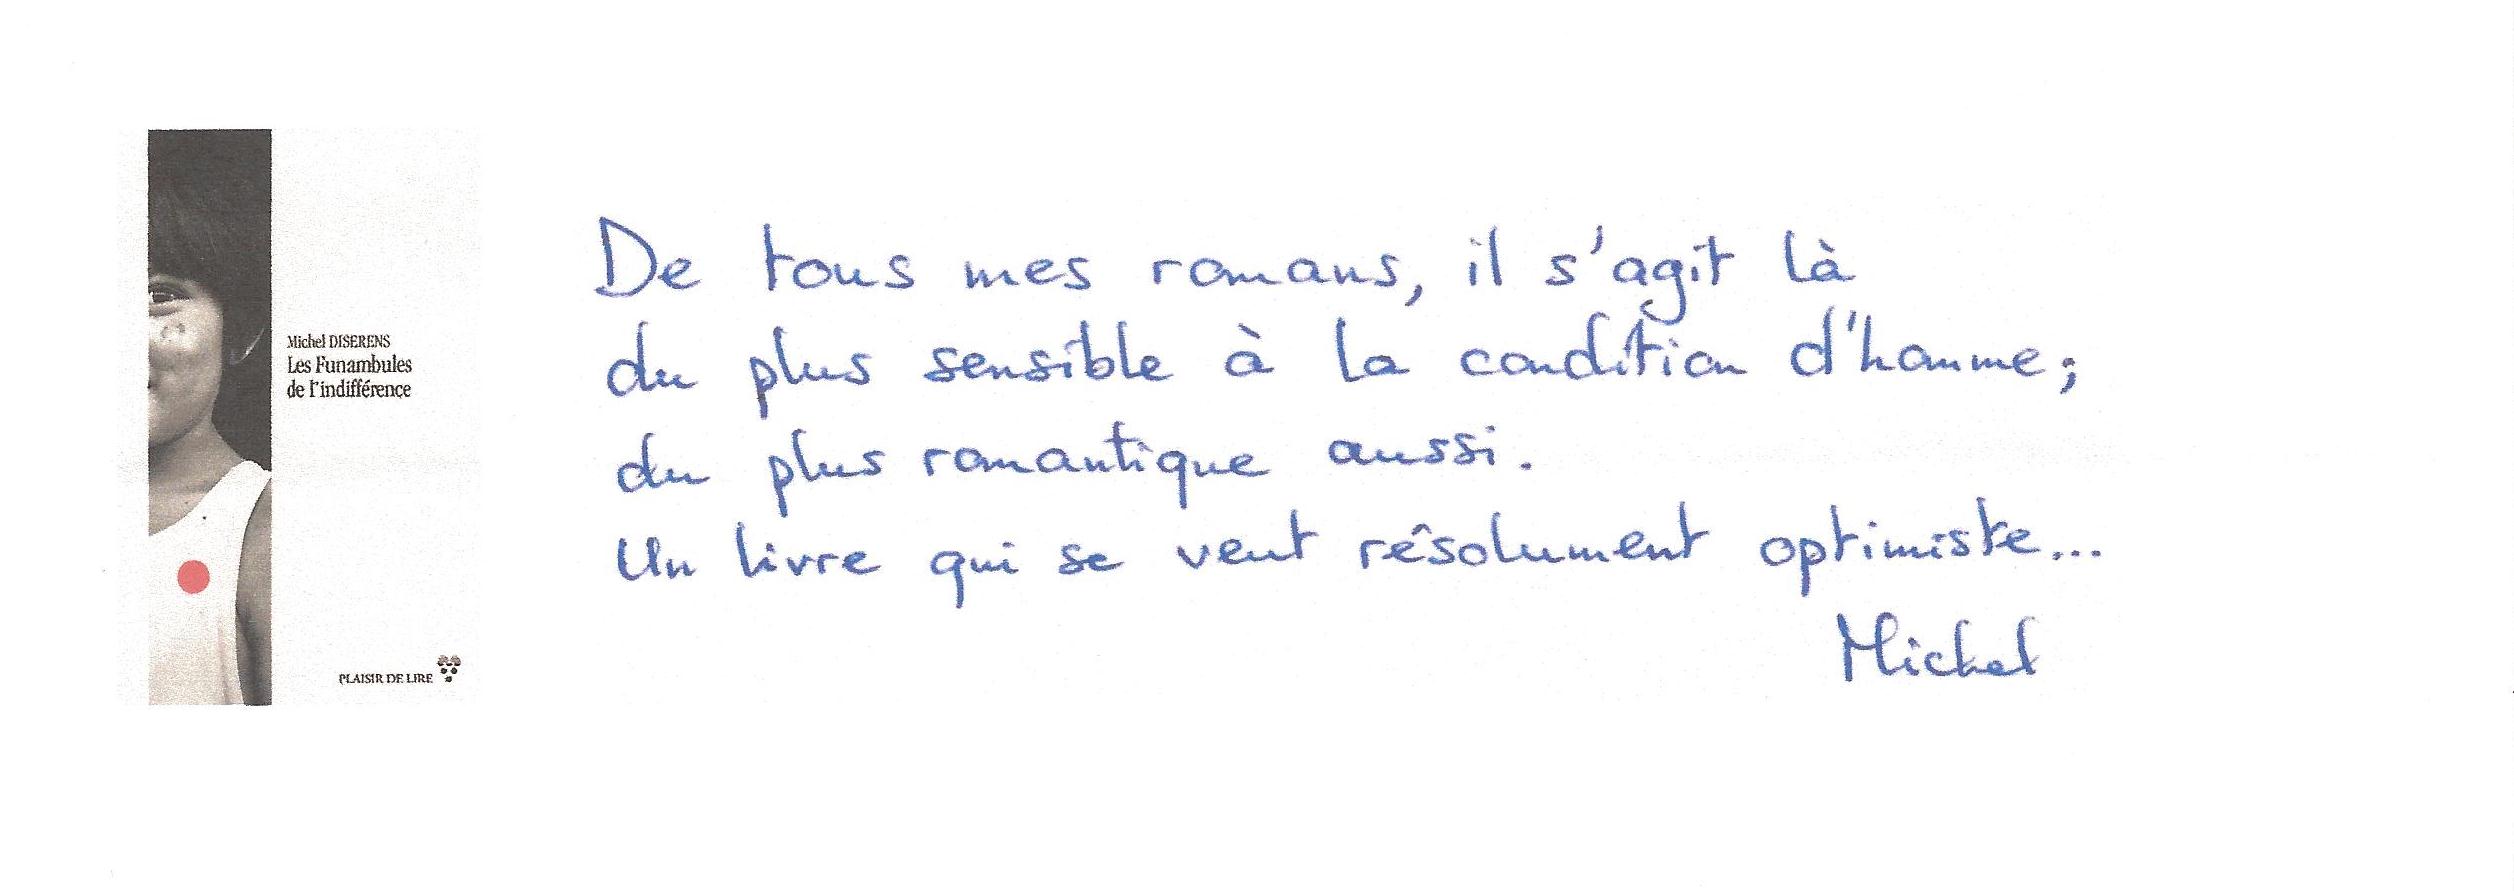 Michel DISERENS
Les Funambules
de l'indifférence
PLAISIR DE LIRE
De tous mes romans, il s'agit là
du plus sensible à la condition d'homme;
du plus romantique aussi.
Un livre qui se veut résolument optimiste...
Michel